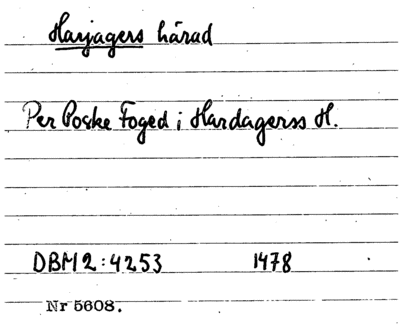 Harjagers härad
Per Poske Foged i Hardagerss H.
DBM 2:4253 1478
Nr 5608.